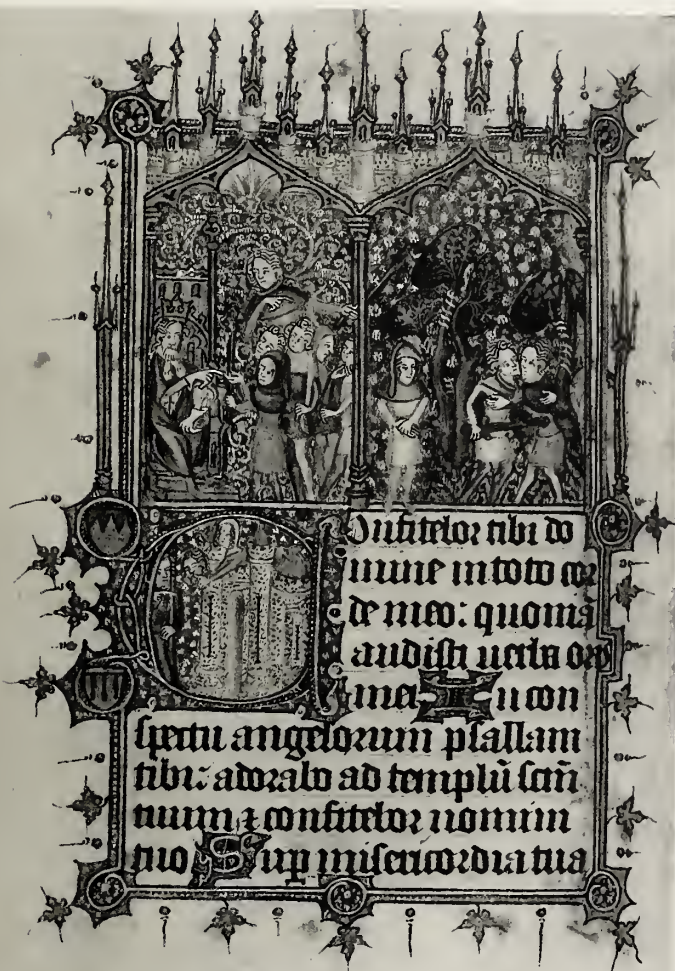 Confitebor tibi do
mine in toto cor
de meo: quoniā
audisti uerba oris
mei In con
spectu angelorum psallam
tibi: adorabo ad templū scm̄
tuum ⁊ confitebor nomini
tuo Sup misericordia tua